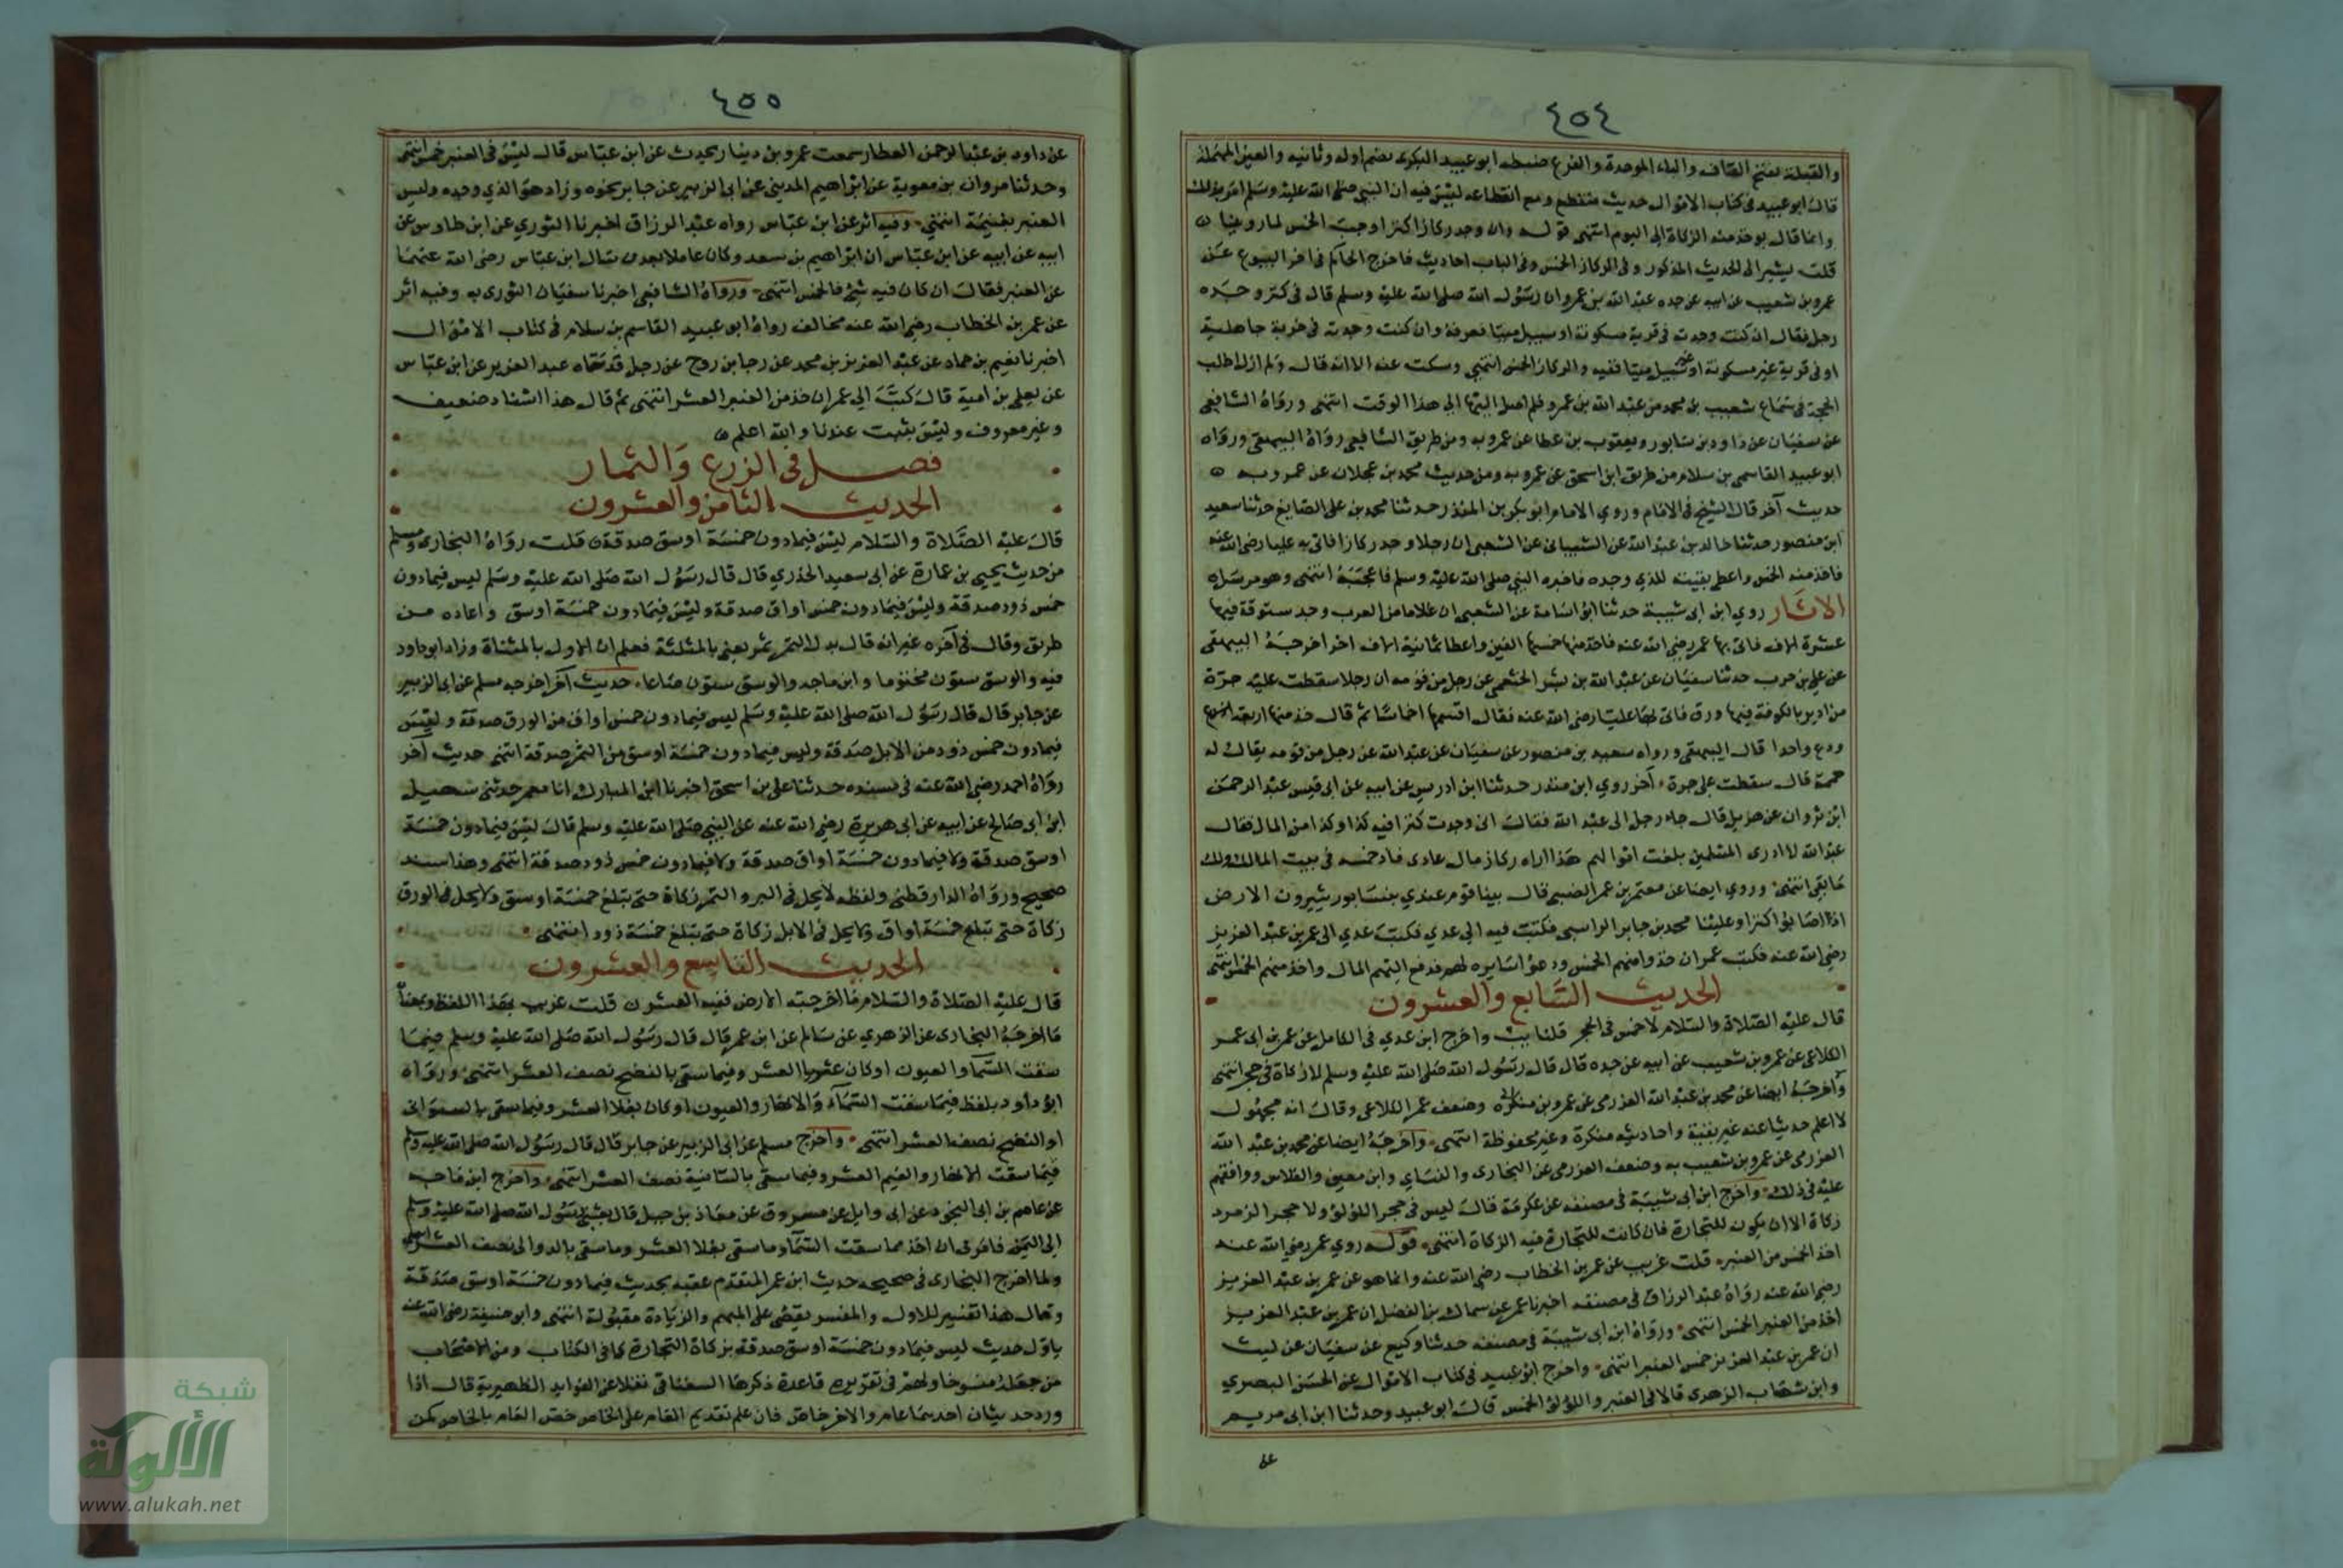 ٤٥٤
والقبلية بفتح القاف والباء الموحدة والفرع ضبطه ابو عبيد البكرى بضم اوله وثانيه والعين المهملة
قال ابو عبيد فى كتاب الاموال حديث منقطع ومع انقطاعه ليس فيه ان النبي صلى الله عليه وسلم امر بذلك
وانما قال يوخذ منه الزكاة الى اليوم انتهى قوله وان وجد ركازا اى كنزا وجب الخمس لما روينا
قلت يشير الى الحديث المذكور وفى الركاز الخمس وفى الباب احاديث فاخرج الحاكم فى اخر البيوع عن
عمرو بن شعيب عن ابيه عن جده عبد الله بن عمرو ان رسول الله صلى الله عليه وسلم قال فى كنز وجده
رجل فقال ان كنت وجدته فى قرية مسكونة او سبيل ميتا فعرفه وان كنت وجدته فى خربة جاهلية
او فى قرية غير مسكونة او غير سبيل ميتا ففيه والركاز الخمس انتهى وسكت عنه الا انه قال ولم ازل اطلب
الحجة فى سماع شعيب بن محمد من عبد الله بن عمرو فلم اصل اليها الى هذا الوقت انتهى ورواه الشافعى
عن سفيان عن داود بن شابور ويعقوب بن عطا عن عمرو به ومن طريق الشافعى رواه البيهقى ورواه
ابو عبيد القاسم بن سلام من طريق ابن اسحق عن عمرو به ومن حديث محمد بن عجلان عن عمرو به
حديث آخر قال الشيخ فى الامام وروى الامام ابو بكر بن المنذر حدثنا محمد بن على الصايغ حدثنا سعيد
ابن منصور حدثنا خالد بن عبد الله عن الشيبانى عن الشعبى ان رجلا وجد ركازا فاتى به عليا رضى الله عنه
فاخذ منه الخمس واعطى بقيته للذي وجده فاخبره النبي صلى الله عليه وسلم فاعجبه انتهى وهو مرسل
الاثار روى ابن ابى شيبة حدثنا ابو اسامة عن الشعبى ان غلاما من العرب وجد ستوقة فيها
عشرة الاف فاتى بها عمر رضى الله عنه فاخذ منها خمسها الفين واعطا ثمانية الاف اخر اخرجه البيهقى
عن على بن حرب حدثنا سفيان عن عبد الله بن بشر الخثعمى عن رجل من قومه ان رجلا سقطت عليه جرة
من دير بالكوفة فيها ورق فاتى بها عليا رضى الله عنه فقال اقسمها اخماسا ثم قال خذ منها اربعة
ودع واحدا قال البيهقى ورواه سعيد بن منصور عن سفيان عن عبد الله عن رجل من قومه يقال له
حممة قال سقطت على جرة آخر روى ابن منذر حدثنا ابن ادريس عن ابيه عن ابى قيس عبد الرحمن
ابن ثروان عن هزيل قال جاء رجل الى عبد الله فقال انى وجدت كنزا فيه كذا وكذا من المال فقال
عبد الله لا ادرى المسلمين بلغت اموالهم هذا اراه ركاز مال عادى فاد خمسه فى بيت المال ولك
ما بقى انتهى وروى ايضا عن معتمر بن عمر الضبى قال بينا قوم عندي بنسابور يثيرون الارض
اذا اصابوا كنزا وعلينا محمد بن جابر الراسبى فكتب فيه الى عدي فكتب عدي الى عمر بن عبد العزيز
رضى الله عنه فكتب عمر ان خذوا منهم الخمس ودعوا سايره لهم فدفع اليهم المال واخذ منهم الخمس انتهى
الحديث السابع والعشرون
قال عليه الصلاة والسلام لا خمس فى الحجر قلنا واخرج ابن عدي فى الكامل عن عمر بن ابى عمر
الكلاعى عن عمرو بن شعيب عن ابيه عن جده قال قال رسول الله صلى الله عليه وسلم لا زكاة فى حجر انتهى
وضعف عمر الكلاعى وقال انه مجهول
لا اعلم حدث عنه غير بقية واحاديثه منكرة وغير محفوظة انتهى واخرجه ايضا عن محمد بن عبد الله
العزرمى عن عمرو بن شعيب به وضعف العزرمى عن البخارى والنساى وابن معين والفلاس ووافقهم
عليه فى ذلك واخرج ابن ابى شيبة فى مصنفه عن عكرمة قال ليس فى حجر اللؤلؤ ولا حجر الزمرد
زكاة الا ان يكون للتجارة فان كانت للتجارة ففيه الزكاة انتهى قوله روى عمر رضى الله عنه
اخذ الخمس من العنبر قلت غريب عن عمر بن الخطاب رضى الله عنه وانما هو عن عمر بن عبد العزيز
رضى الله عنه رواه عبد الرزاق فى مصنفه اخبرنا معمر عن سماك بن الفضل ان عمر بن عبد العزيز
اخذ من العنبر الخمس انتهى ورواه ابن ابى شيبة فى مصنفه حدثنا وكيع عن سفيان عن ليث
ان عمر بن عبد العزيز خمس العنبر انتهى واخرج ابو عبيد فى كتاب الاموال عن الحسن البصري
وابن شهاب الزهرى قالا فى العنبر واللؤلؤ الخمس قال ابو عبيد وحدثنا ابن ابى مريم
عن
٤٥٥
عن داود بن عبد الرحمن العطار سمعت عمرو بن دينار يحدث عن ابن عباس قال ليس فى العنبر خمس انتهى
وحدثنا مروان بن معوية عن ابراهيم المدينى عن ابى الزبير عن جابر نحوه وزاد هو الذي وجده وليس
العنبر بغنيمة انتهى وفيه اثر عن ابن عباس رواه عبد الرزاق اخبرنا الثوري عن ابن طاوس عن
ابيه عن ابيه عن ابن عباس ان ابراهيم بن سعد وكان عاملا بعدن سال ابن عباس رضى الله عنهما
عن العنبر فقال ان كان فيه شئ فالخمس انتهى ورواه الشافعى اخبرنا سفيان الثورى به وفيه اثر
عن عمر بن الخطاب رضى الله عنه مخالف رواه ابو عبيد القاسم بن سلام فى كتاب الاموال
اخبرنا نعيم بن حماد عن عبد العزيز بن محمد عن رجا بن روح عن رجل قد سماه عبد العزيز عن ابن عباس
عن يعلى بن امية قال كتب الى عمر ان خذ من العنبر العشر انتهى ثم قال هذا اسناد ضعيف
وغير معروف وليس يثبت عندنا والله اعلم
فصل فى الزرع والثمار
الحديث الثامن والعشرون
قال عليه الصلاة والسلام ليس فيما دون خمسة اوسق صدقة قلت رواه البخارى ومسلم
من حديث يحيى بن عمارة عن ابى سعيد الخدري قال قال رسول الله صلى الله عليه وسلم ليس فيما دون
خمس ذود صدقة وليس فيما دون خمس اواق صدقة وليس فيما دون خمسة اوسق واعاده من
طريق وقال فى آخره غير انه قال بدل التمر ثمر يعنى بالمثلثة فعلم ان الاول بالمثناة وزاد ابو داود
فيه والوسق ستون مختوما وابن ماجه والوسق ستون صاعا حديث آخر اخرجه مسلم عن ابى الزبير
عن جابر قال قال رسول الله صلى الله عليه وسلم ليس فيما دون خمس اواق من الورق صدقة وليس
فيما دون خمس ذود من الابل صدقة وليس فيما دون خمسة اوسق من التمر صدقة انتهى حديث آخر
رواه احمد رضى الله عنه فى مسنده حدثنا على بن اسحق اخبرنا ابن المبارك انا معمر حدثنى سهيل
ابن ابى صالح عن ابيه عن ابى هريرة رضى الله عنه عن النبي صلى الله عليه وسلم قال ليس فيما دون خمسة
اوسق صدقة ولا فيما دون خمسة اواق صدقة ولا فيما دون خمس ذود صدقة انتهى وهذا سند
صحيح ورواه الدارقطنى ولفظه لا يحل فى البر والتمر زكاة حتى تبلغ خمسة اوسق ولا يحل فى الورق
زكاة حتى تبلغ خمسة اواق ولا يحل فى الابل زكاة حتى تبلغ خمسة ذود انتهى
الحديث التاسع والعشرون
قال عليه الصلاة والسلام ما اخرجته الارض ففيه العشر قلت غريب بهذا اللفظ وبمعناه
ما اخرجه البخارى عن الزهري عن سالم عن ابن عمر قال قال رسول الله صلى الله عليه وسلم فيما
سقت السما والعيون او كان عثريا العشر وفيما سقى بالنضح نصف العشر انتهى ورواه
ابو داود بلفظ فيما سقت السماء والانهار والعيون او كان بعلا العشر وفيما سقى بالسوانى
او النضح نصف العشر انتهى واخرج مسلم عن ابى الزبير عن جابر قال قال رسول الله صلى الله عليه وسلم
فيما سقت الانهار والغيم العشر وفيما سقى بالسانية نصف العشر انتهى واخرج ابن ماجه
عن عاصم بن ابى النجود عن ابى وايل عن مسروق عن معاذ بن جبل قال بعثنى رسول الله صلى الله عليه وسلم
الى اليمن فامرنى ان اخذ مما سقت السماء وما سقى بعلا العشر وما سقى بالدوالى نصف العشر انتهى
ولما اخرج البخارى فى صحيحه حديث ابن عمر المتقدم عقبه بحديث فيما دون خمسة اوسق صدقة
وقال هذا تفسير للاول والمفسر يقضى على المبهم والزيادة مقبولة انتهى وابو حنيفة رضى الله عنه
ياول حديث ليس فيما دون خمسة اوسق صدقة بزكاة التجارة كما فى الكتاب ومن الاصحاب
من جعله منسوخا ولهم فى تقريره قاعدة ذكرها السغناقى نقلا عن الفوايد الظهيرية قال اذا
ورد حديثان احدهما عام والاخر خاص فان علم تقديم العام على الخاص خص العام بالخاص كمن
شبكة
الألوكة
www.alukah.net